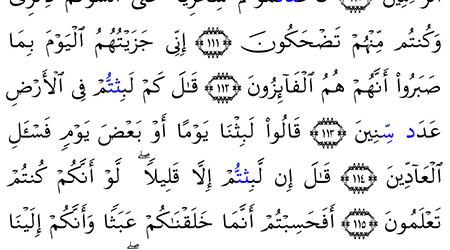 وَكُنتُم مِّنْهُمْ تَضْحَكُونَ ١١١ إِنِّى جَزَيْتُهُمُ ٱلْيَوْمَ بِمَا
صَبَرُوٓا۟ أَنَّهُمْ هُمُ ٱلْفَآئِزُونَ ١١٢ قَـٰلَ كَمْ لَبِثتُّمْ فِى ٱلْأَرْضِ
عَدَد سِّنِينَ ١١٣ قَالُوا۟ لَبِثْنَا يَوْمًا أَوْ بَعْضَ يَوْمٍ فَسْـَٔلِ
ٱلْعَآدِّينَ ١١٤ قَـٰلَ إِن لَّبِثتُّمْ إِلَّا قَلِيلًا ۖ لَّوْ أَنَّكُمْ كُنتُمْ
تَعْلَمُونَ ١١٥ أَفَحَسِبْتُمْ أَنَّمَا خَلَقْنَـٰكُمْ عَبَثًا وَأَنَّكُمْ إِلَيْنَا